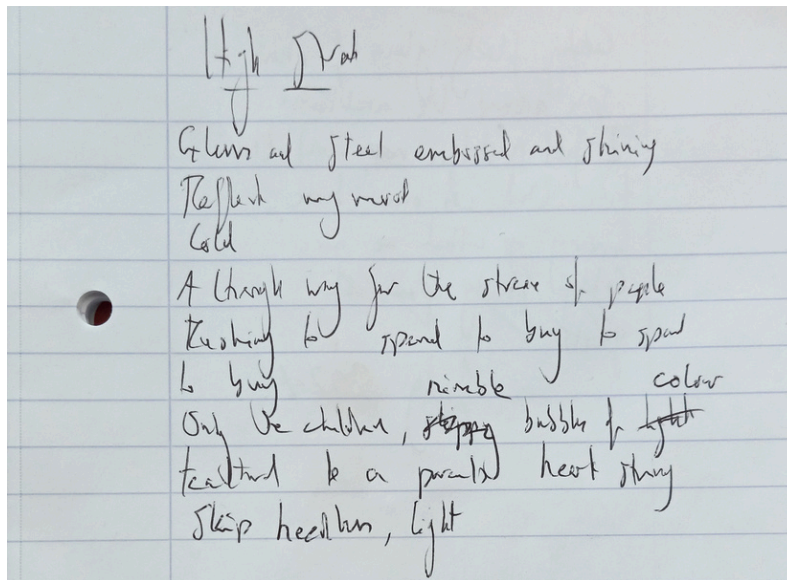 High Street
Glass and steel embossed and shining
Reflect my mood
Cold
A through way for the stream of people
Rushing to spend to buy to spend
to buy nimble colour
Only the children, skippy bubbles of light
to a parent's heart string
Skip heedless, light